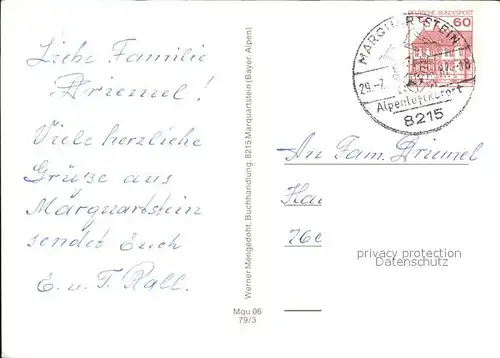 Liebe Familie
Driemel!
Viele herzliche
Grüße aus
Marquartstein
sendet Euch
E. u. T. Rall.
Werner Mengedoht, Buchhandlung, 8215 Marquartstein (Bayer. Alpen)
Mqu 06
79/3
DEUTSCHE BUNDESPOST
60
MARQUARTSTEIN
29.-7.
-18
Alpenluftkurort
8215
An Fam. Driemel
Hai
76
privacy protection
Datenschutz